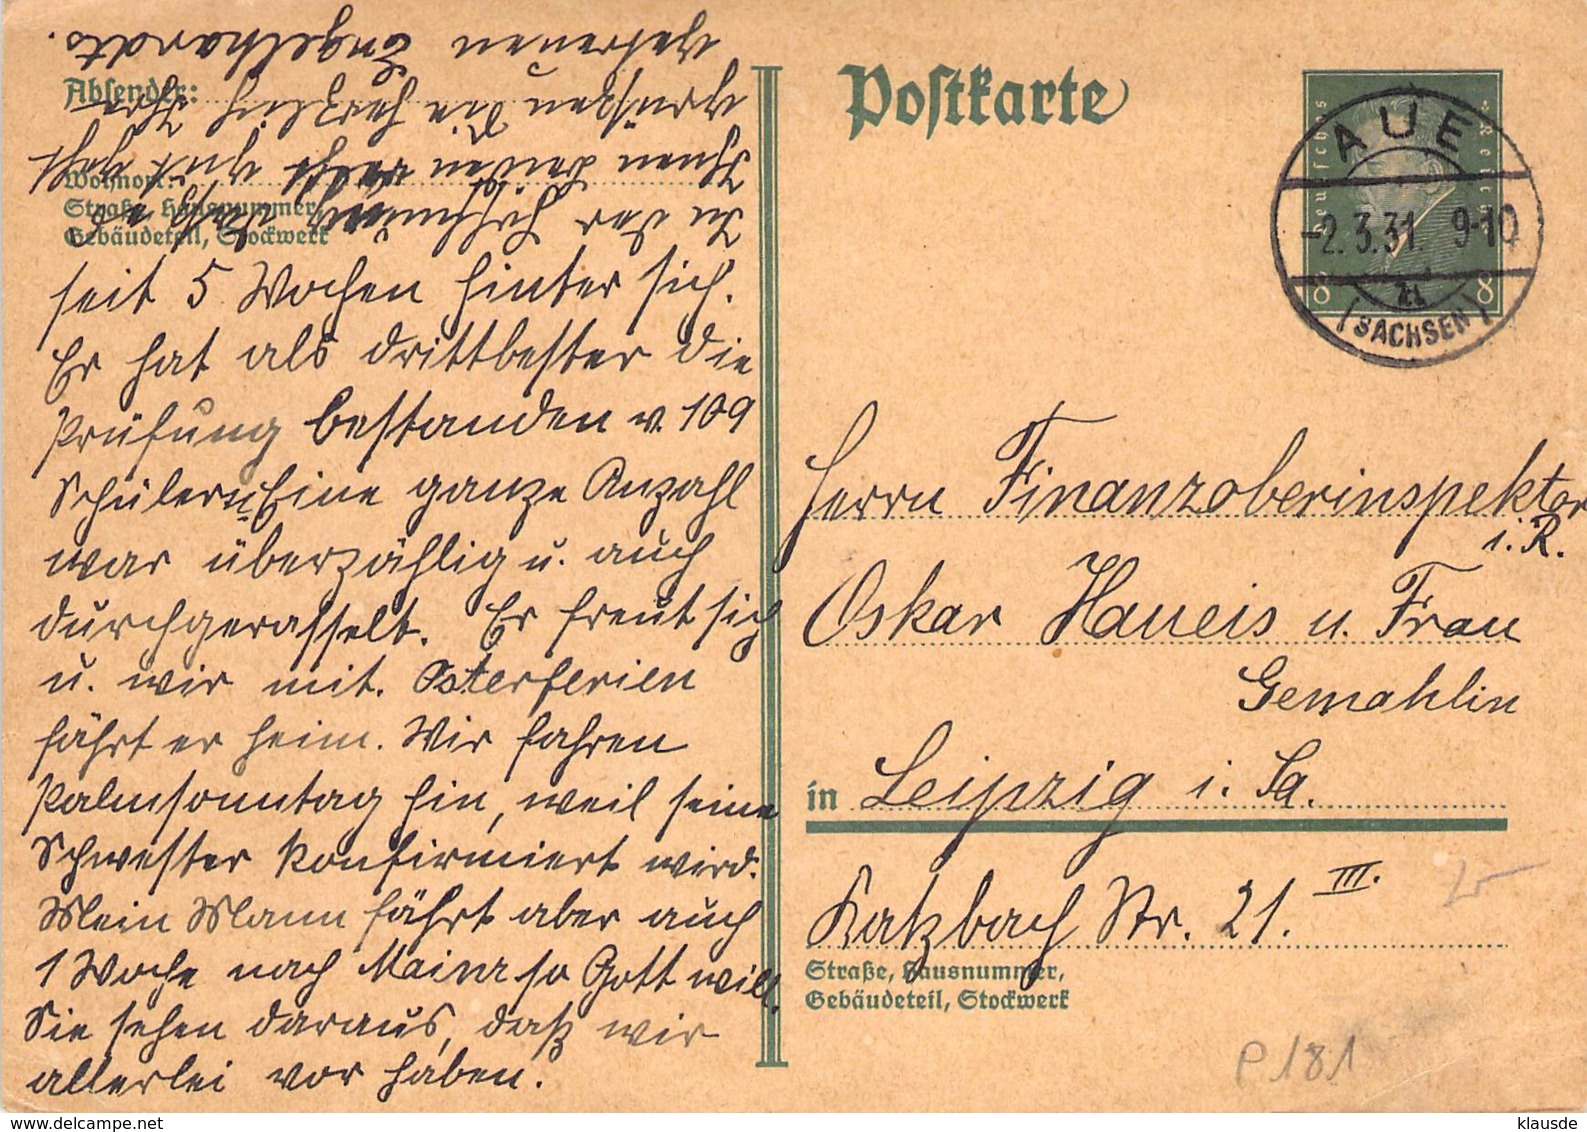 Postkarte
Absender:
Wohnort:
Straße, Hausnummer,
Gebäudeteil, Stockwerk
seit 5 Wochen hinter sich.
Er hat als drittbester die
Prüfung bestanden v. 109
Schülern. Eine ganze Anzahl
war überzählig u. auch
durchgerasselt. Er freut sich
u. wir mit. Osterferien
fährt er heim. Wir fahren
Palmsonntag hin, weil seine
Schwester konfirmiert wird.
Mein Mann fährt aber auch
1 Woche nach Mainz so Gott will.
Sie sehen daraus, daß wir
allerlei vor haben.
In der Hoffnung, daß es
Ihnen beiden recht gut geht
grüßen Sie herzlich Ihre
getreuen Engelhardts.
Deutsches Reich
8 8
AUE
-2.3.31. 9-10
(SACHSEN)
Herrn Finanzoberinspektor
i. R.
Oskar Haueis u. Frau
Gemahlin
in Leipzig i. Sa.
Katzbach Str. 21. III.
Straße, Hausnummer,
Gebäudeteil, Stockwerk
P181
klausde